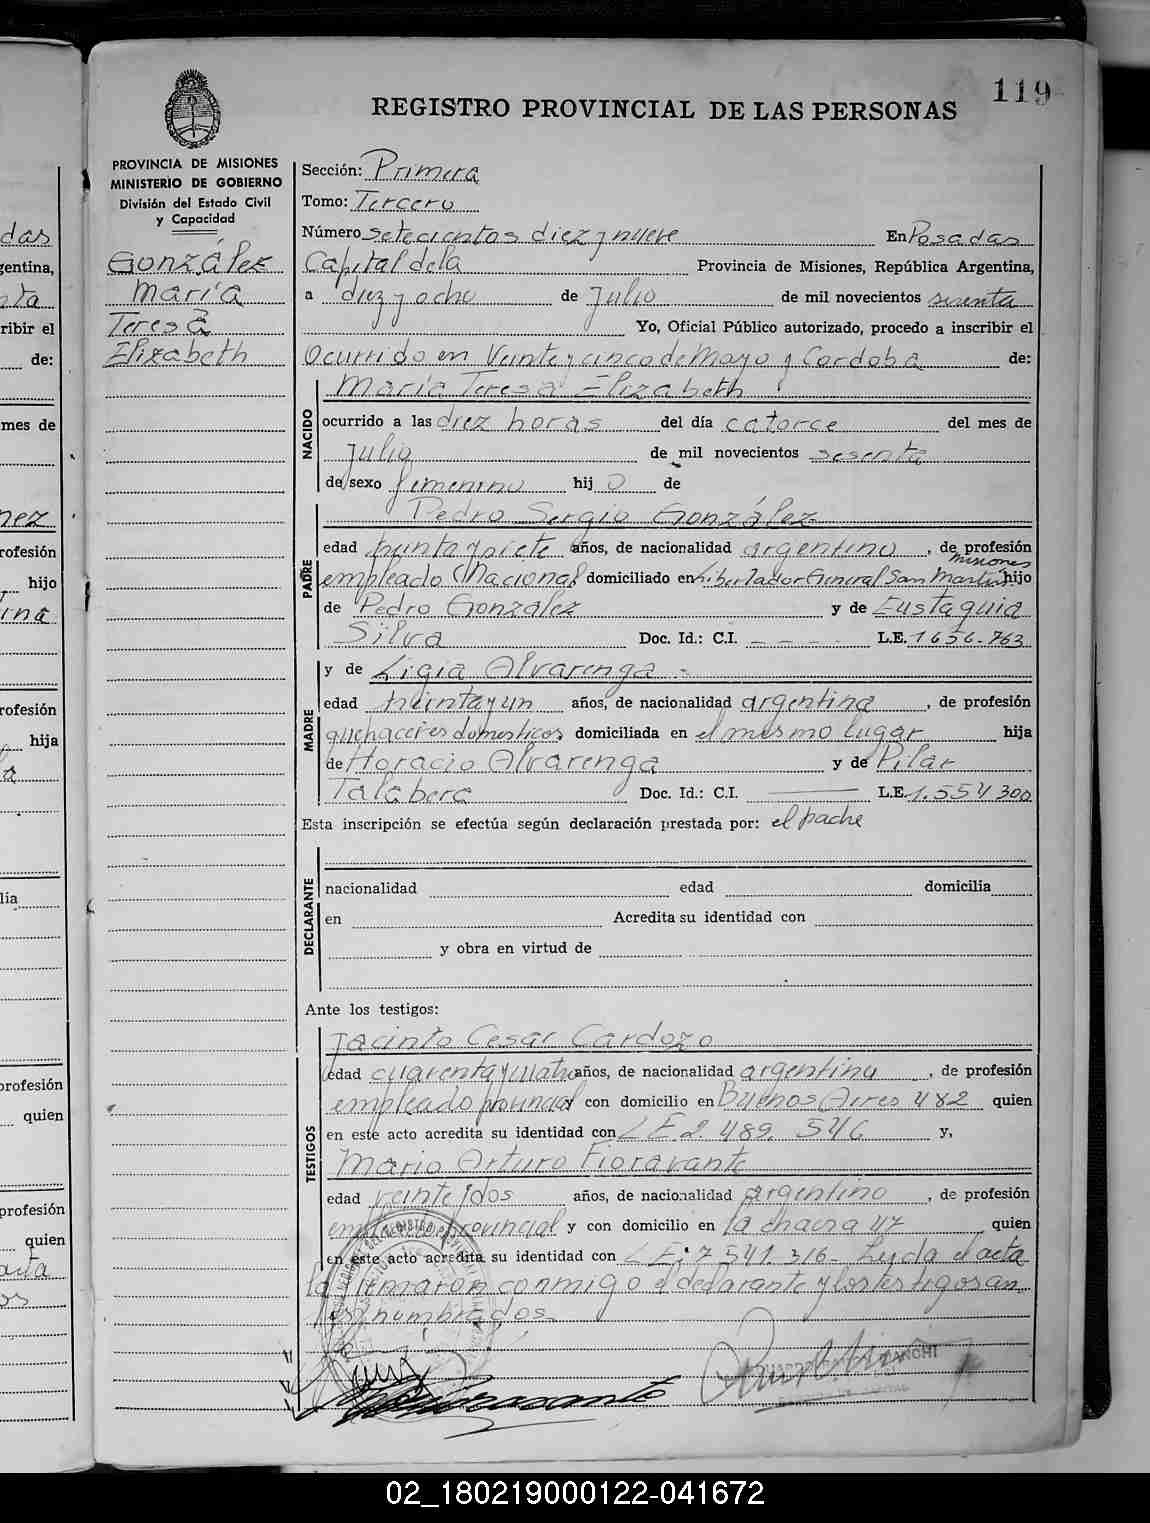 119
REGISTRO PROVINCIAL DE LAS PERSONAS
PROVINCIA DE MISIONES
MINISTERIO DE GOBIERNO
División del Estado Civil
y Capacidad
González
María
Teresa
Elizabeth
Sección: Primera
Tomo: Tercero
Número setecientos diez y nueve En Posadas
Capital de la Provincia de Misiones, República Argentina,
a diez y ocho de Julio de mil novecientos sesenta
Yo, Oficial Público autorizado, procedo a inscribir el
Ocurrido en Veinte y cinco de Mayo y Cordoba de:
NACIDO
María Teresa Elizabeth
ocurrido a las diez horas del día catorce del mes de
Julio de mil novecientos sesenta
de sexo femenino hij o de
PADRE
Pedro Sergio González
edad años, de nacionalidad argentino, de profesión
Misiones
empleado Nacional domiciliado en Libertador General San Martín hijo
de Pedro González y de Eustaquia
Silva Doc. Id.: C.I. - - - - L.E. 1656.763
MADRE
y de Ligia Alvarenga -
edad treinta y un años, de nacionalidad argentina, de profesión
quehaceres domesticos domiciliada en el mismo lugar hija
de Horacio Alvarenga y de Pilar
Talabera Doc. Id.: C.I. —— L.E. 1.554 300
Esta inscripción se efectúa según declaración prestada por: el padre
DECLARANTE
nacionalidad edad domicilia
en Acredita su identidad con
y obra en virtud de
Ante los testigos:
TESTIGOS
Jacinto Cesar Cardozo
edad cuarenta y cuatro años, de nacionalidad argentino, de profesión
empleado provincial con domicilio en Buenos Aires 482 quien
en este acto acredita su identidad con L E 2.489.546 y,
Mario Arturo Fioravante
edad veinte y dos años, de nacionalidad argentino, de profesión
provincial y con domicilio en la chacra 47 quien
en este acto acredita su identidad con L E: 7 541.316- Leyda el acta
la firmaron conmigo el declarante y los testigos an
tes nombrados
das
gentina,
ribir el
de:
mes de
nez
rofesión
hijo
ina
rofesión
hija
profesión
quien
profesión
quien
acta
02_180219000122-041672